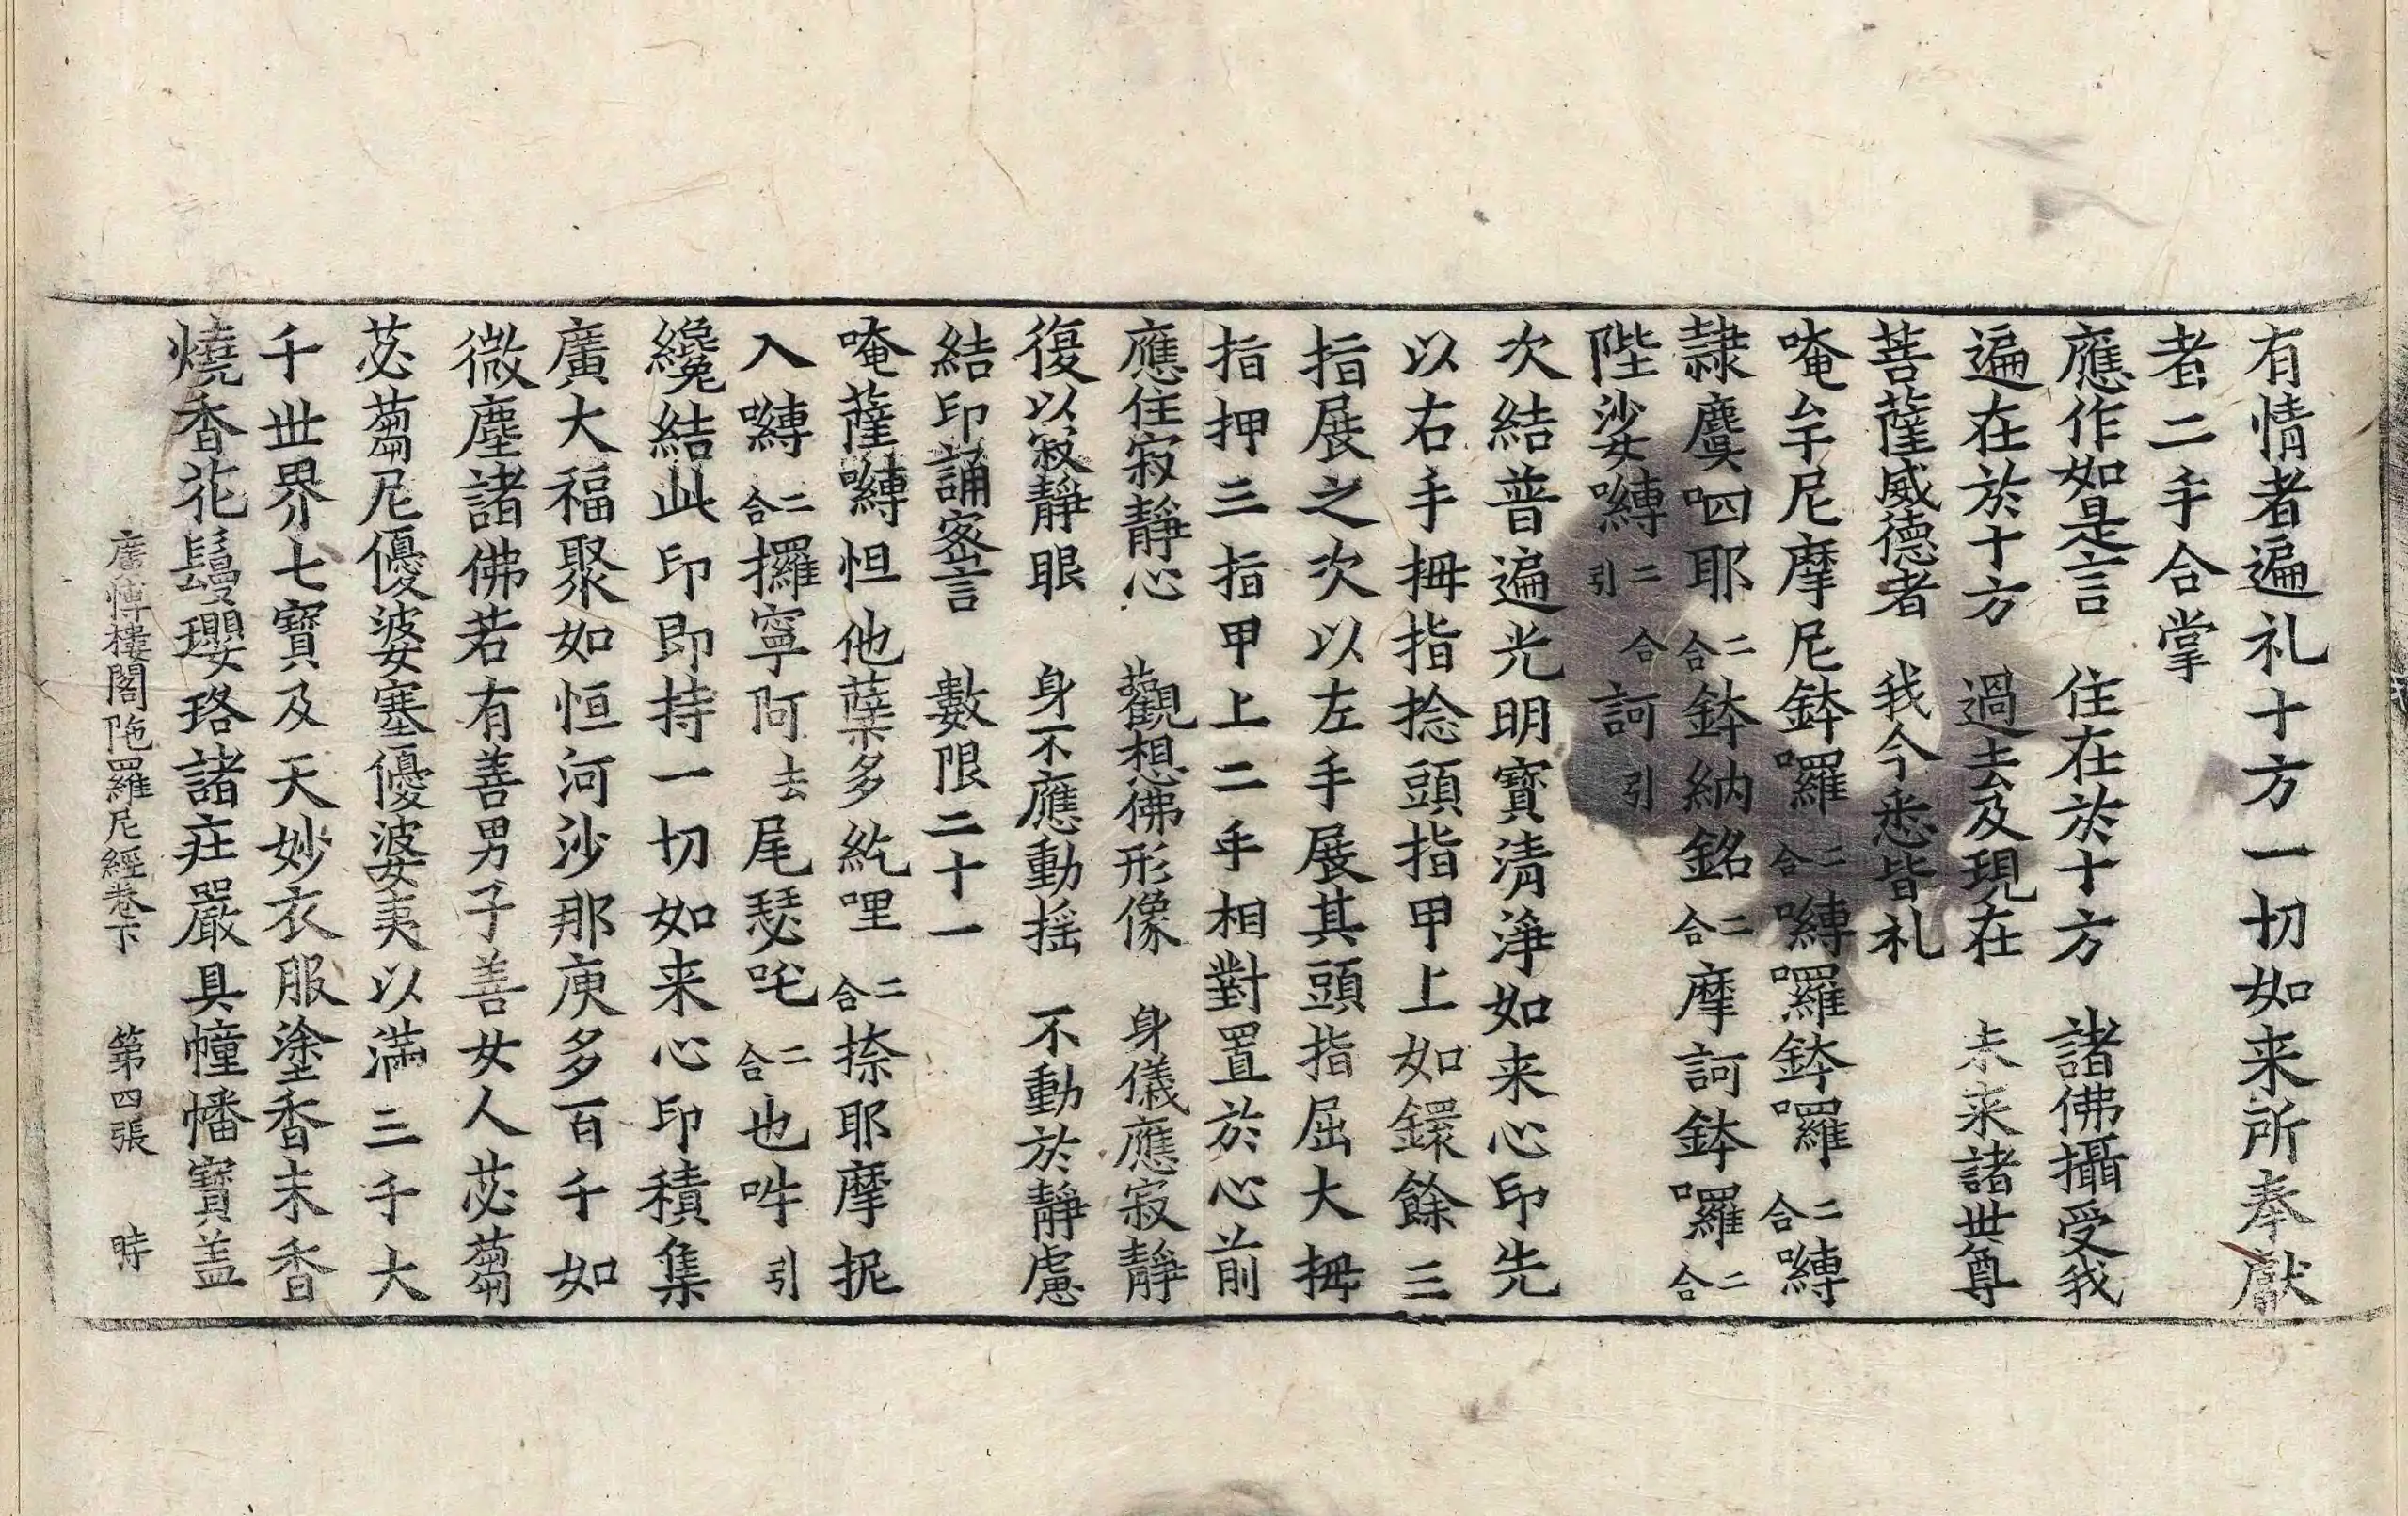 有情者遍礼十方一切如来所奉獻
者二手合掌
應作如是言　住在於十方　諸佛攝受我
遍在於十方　過去及現在　未来諸世尊
菩薩威德者　我今悉皆礼
唵牟尼摩尼鉢囉二合嚩囉鉢囉二合嚩
隷麌呬耶二合鉢納銘二合摩訶鉢囉二合
陛娑嚩二合引訶引
次結普遍光明寶清淨如来心印先
以右手拇指捻頭指甲上如鐶餘三
指展之次以左手展其頭指屈大拇
指押三指甲上二手相對置於心前
應住寂靜心　觀想佛形像　身儀應寂靜
復以寂靜眼　身不應動摇　不動於靜慮
結印誦密言　數限二十一
唵薩嚩怛他蘖多紇哩二合捺耶摩抳
入嚩二合攞寧阿去尾瑟吒二合也吽引
纔結此印即持一切如来心印積集
廣大福聚如恒河沙那庾多百千如
微塵諸佛若有善男子善女人苾蒭
苾蒭尼優婆塞優婆夷以滿三千大
千世界七寶及天妙衣服塗香末香
燒香花鬘瓔珞諸莊嚴具幢幡寶盖
廣博樓閣陁羅尼經卷下　第四張　時